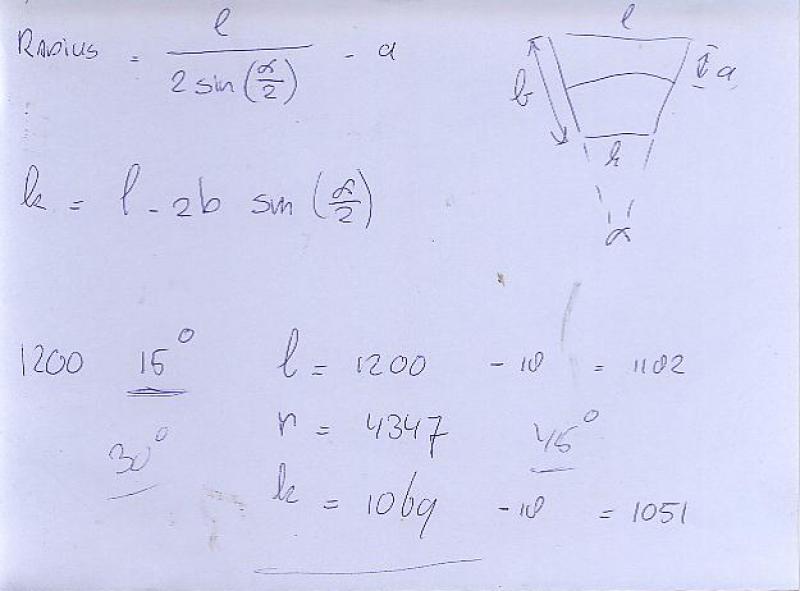 Radius = l / 2 sin (α/2) - a
l
a
b
k
α
k = l - 2b sin (α/2)
1200 15° l = 1200 - 18 = 1182
30° r = 4347 45°
k = 1069 - 18 = 1051